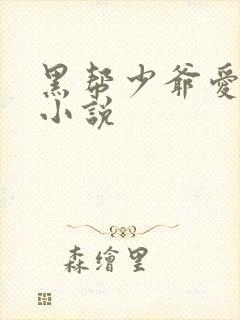 黑帮少爷愛
小説
森繪里